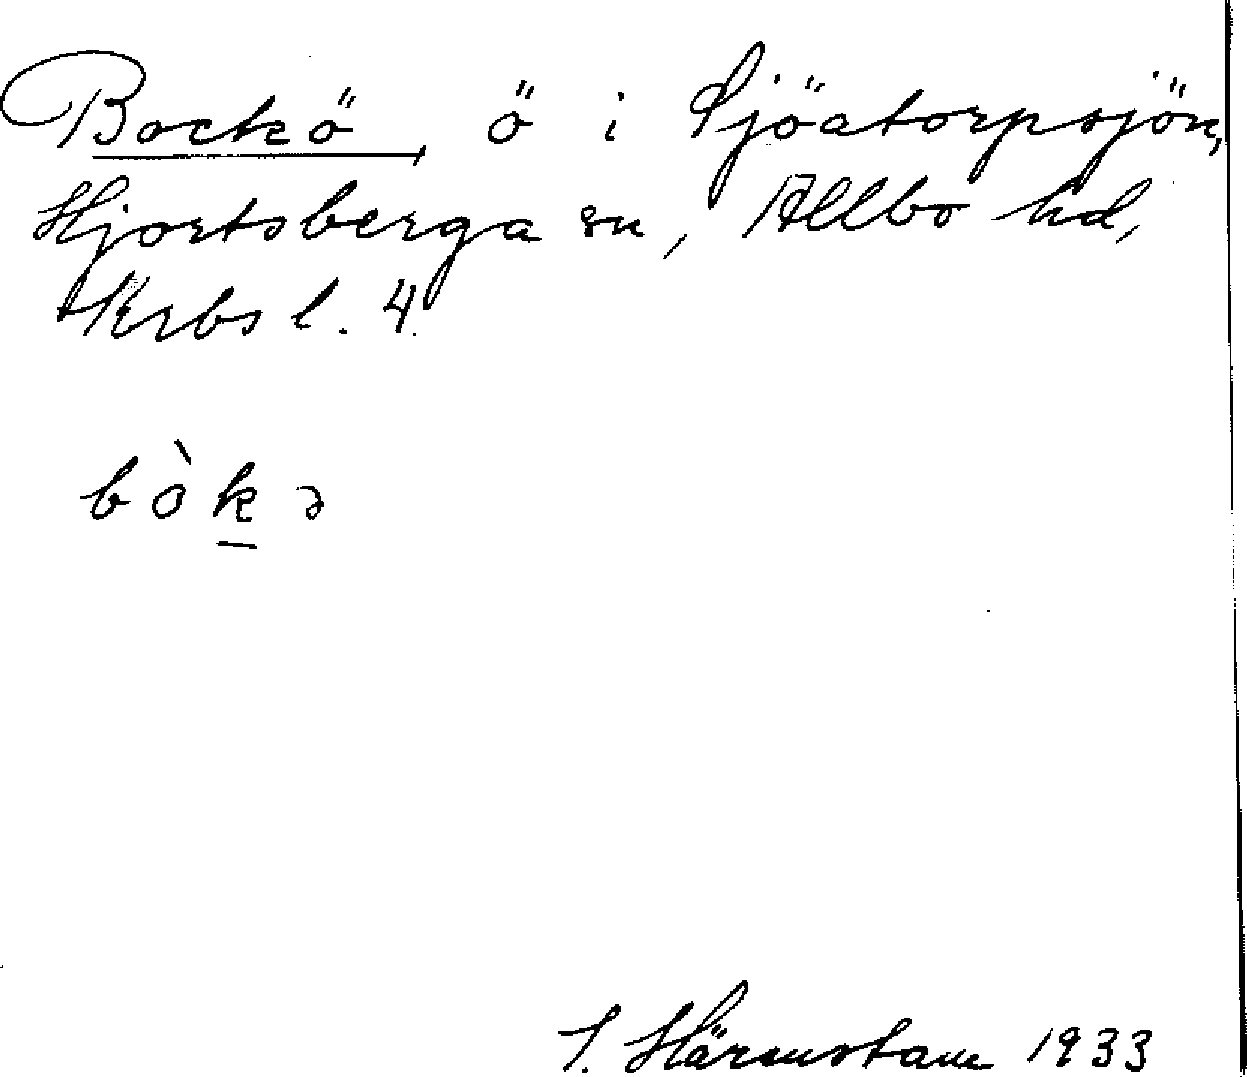 Bockö, ö i Sjöatorpsjön,
Hjortsberga sn, Allbo hd,
Krbs l. 4.
bòkə
1933